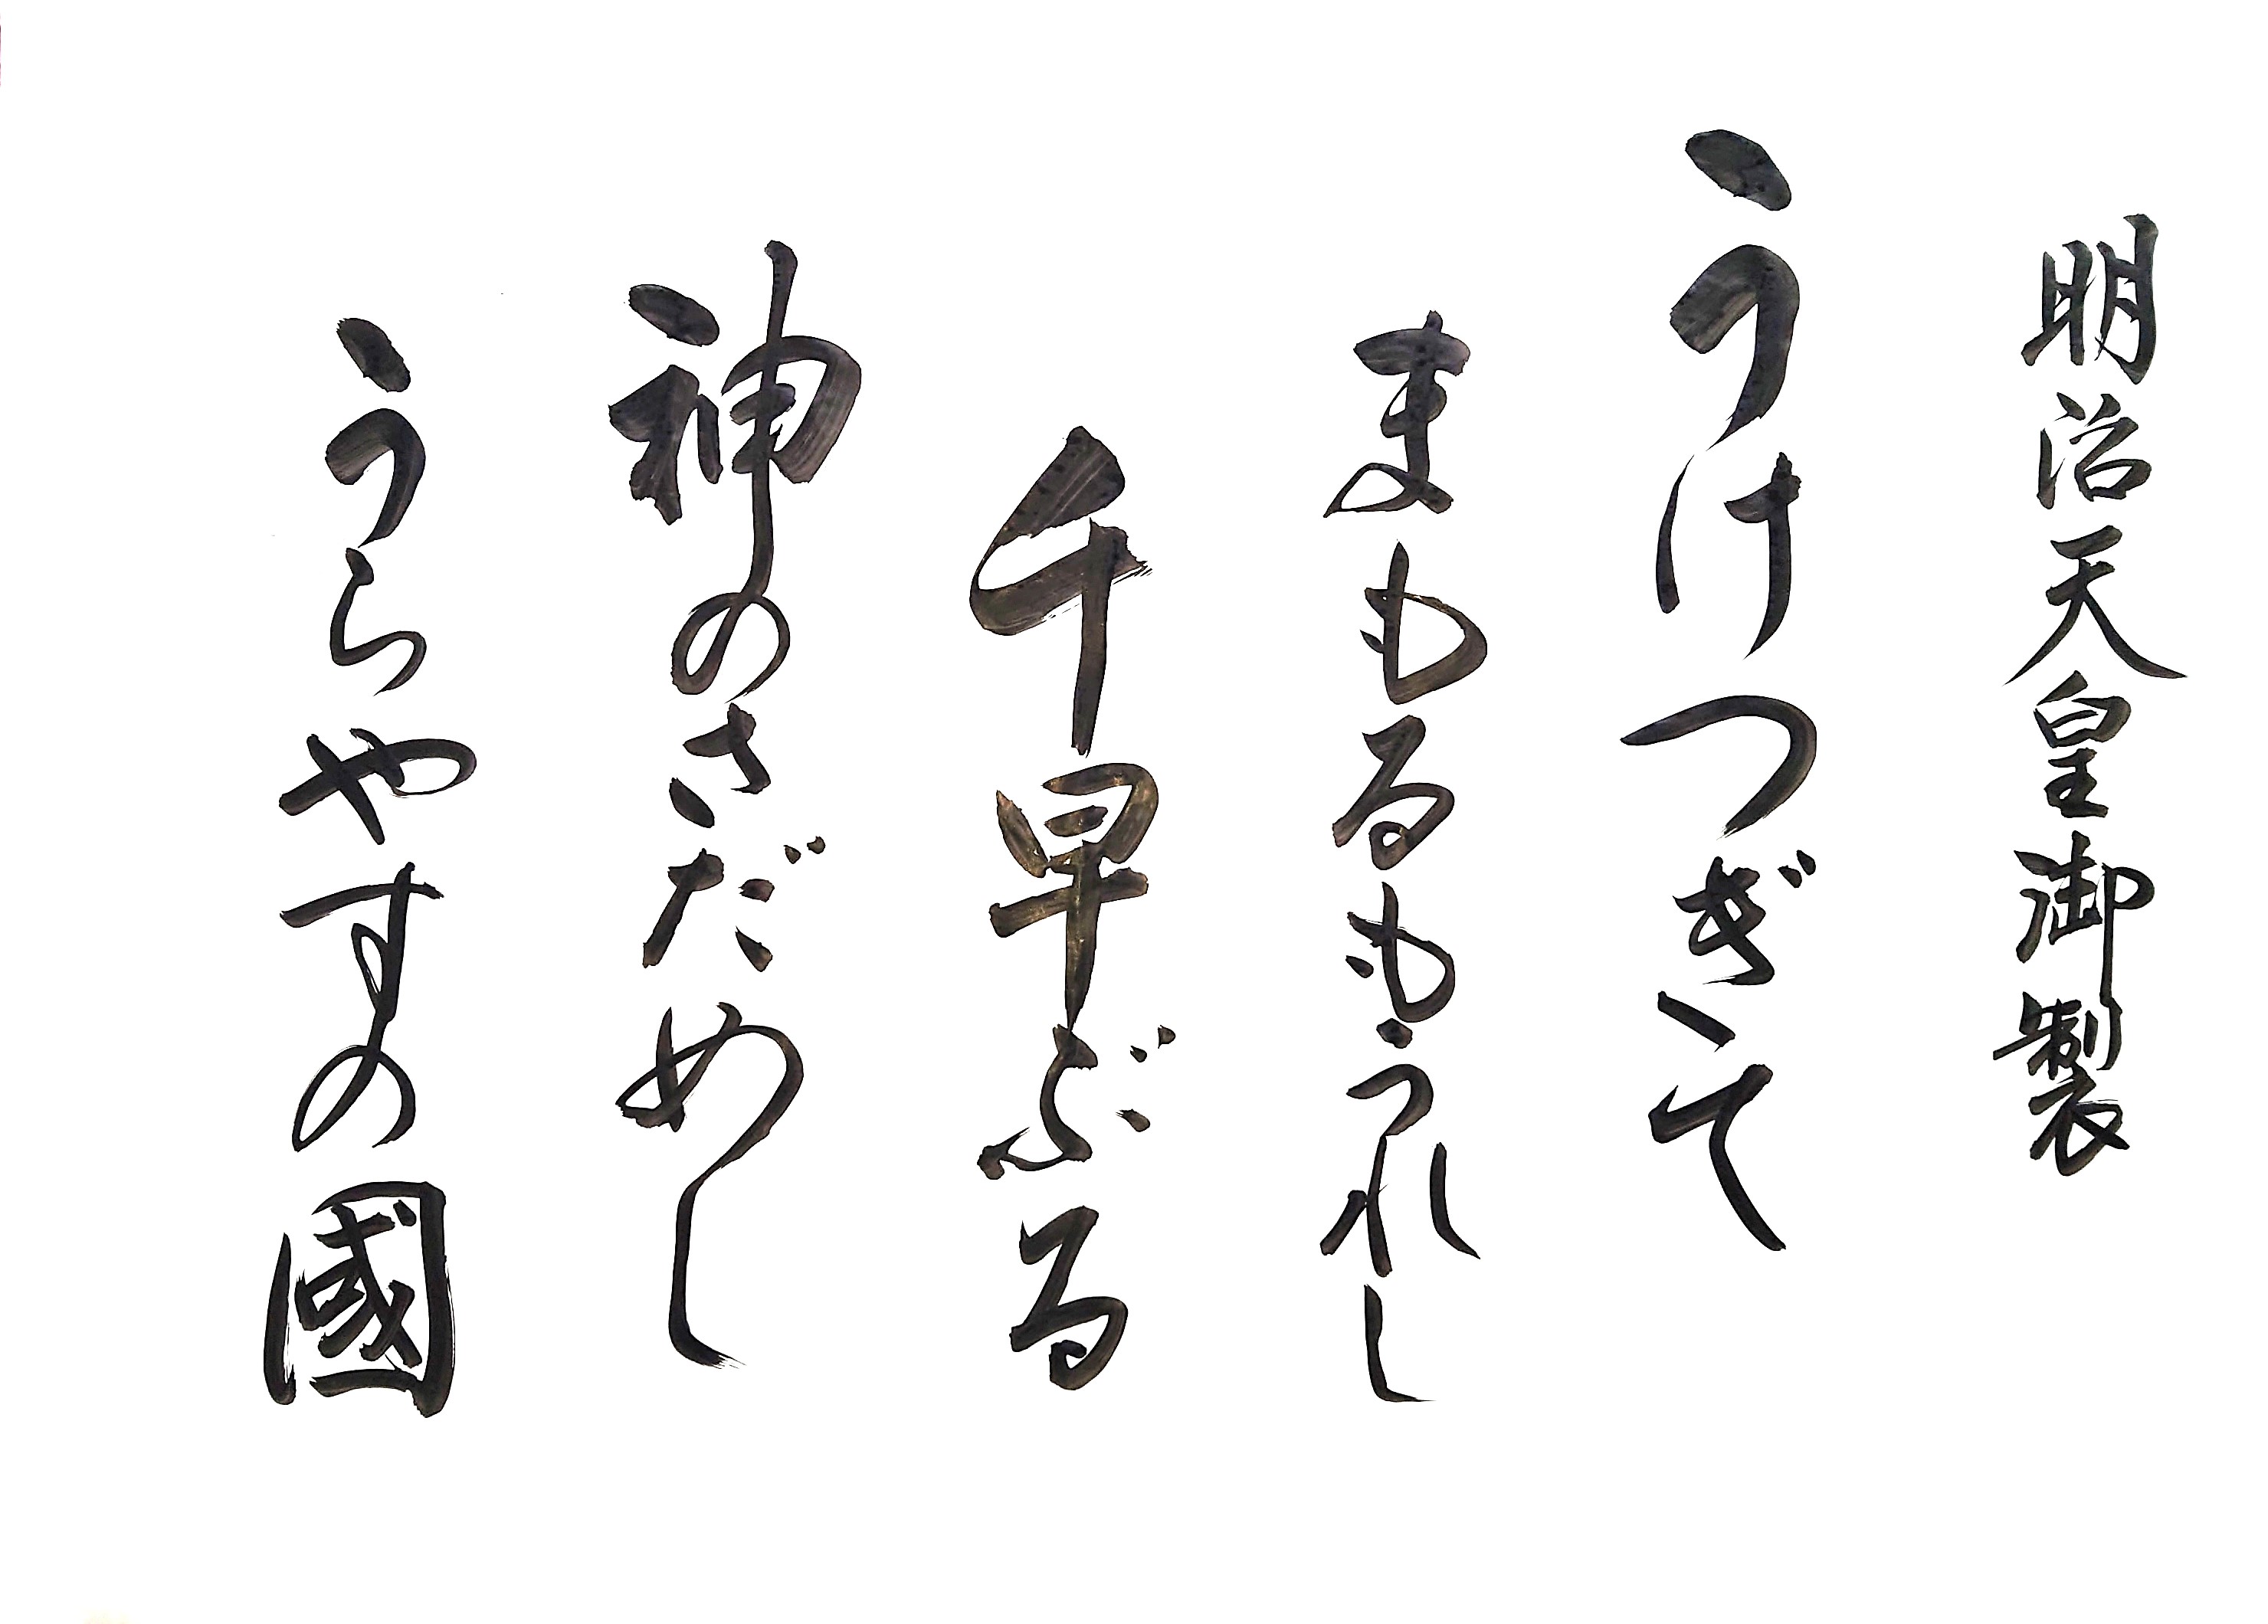 明治天皇御製
うけつぎて
まもるもうれし
千早ぶる
神のさだめし
うらやすの國